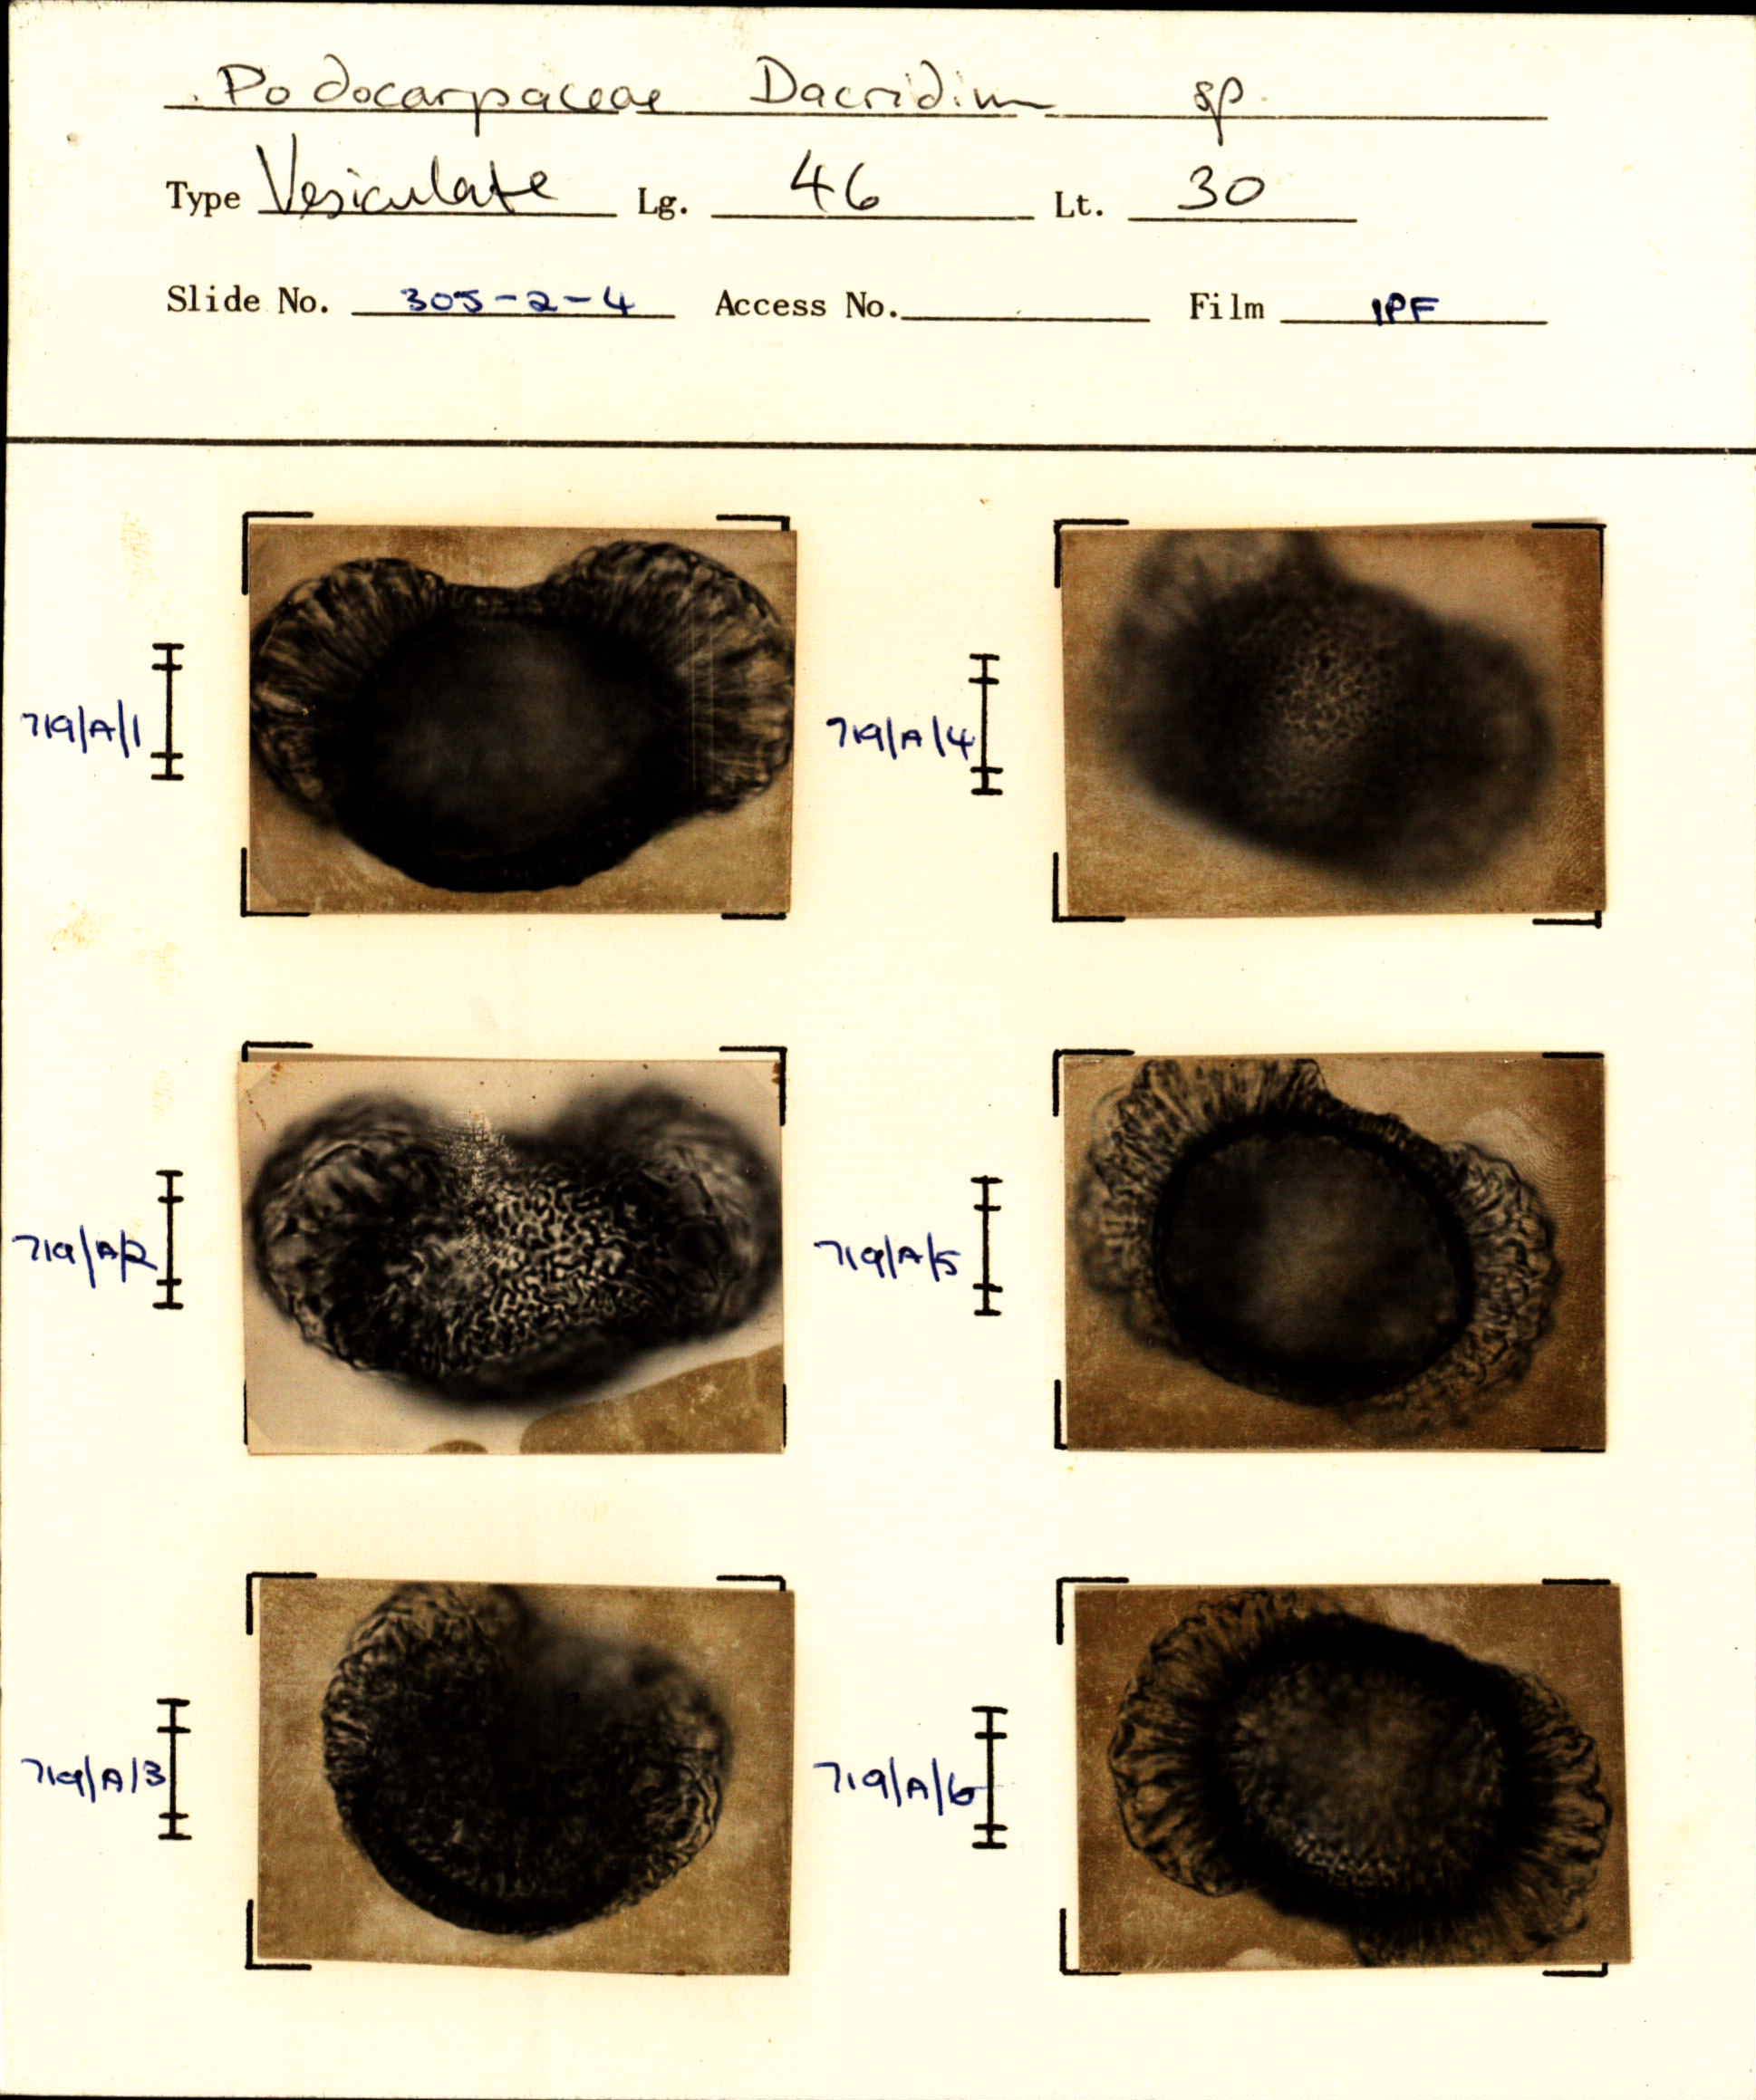 Podocarpaceae Dacridium sp.
Type Vesiculate Lg. 46 Lt. 30
Slide No. 305-2-4 Access No. Film 1PF
719/A/1
719/A/4
719/A/2
719/A/5
719/A/3
719/A/6